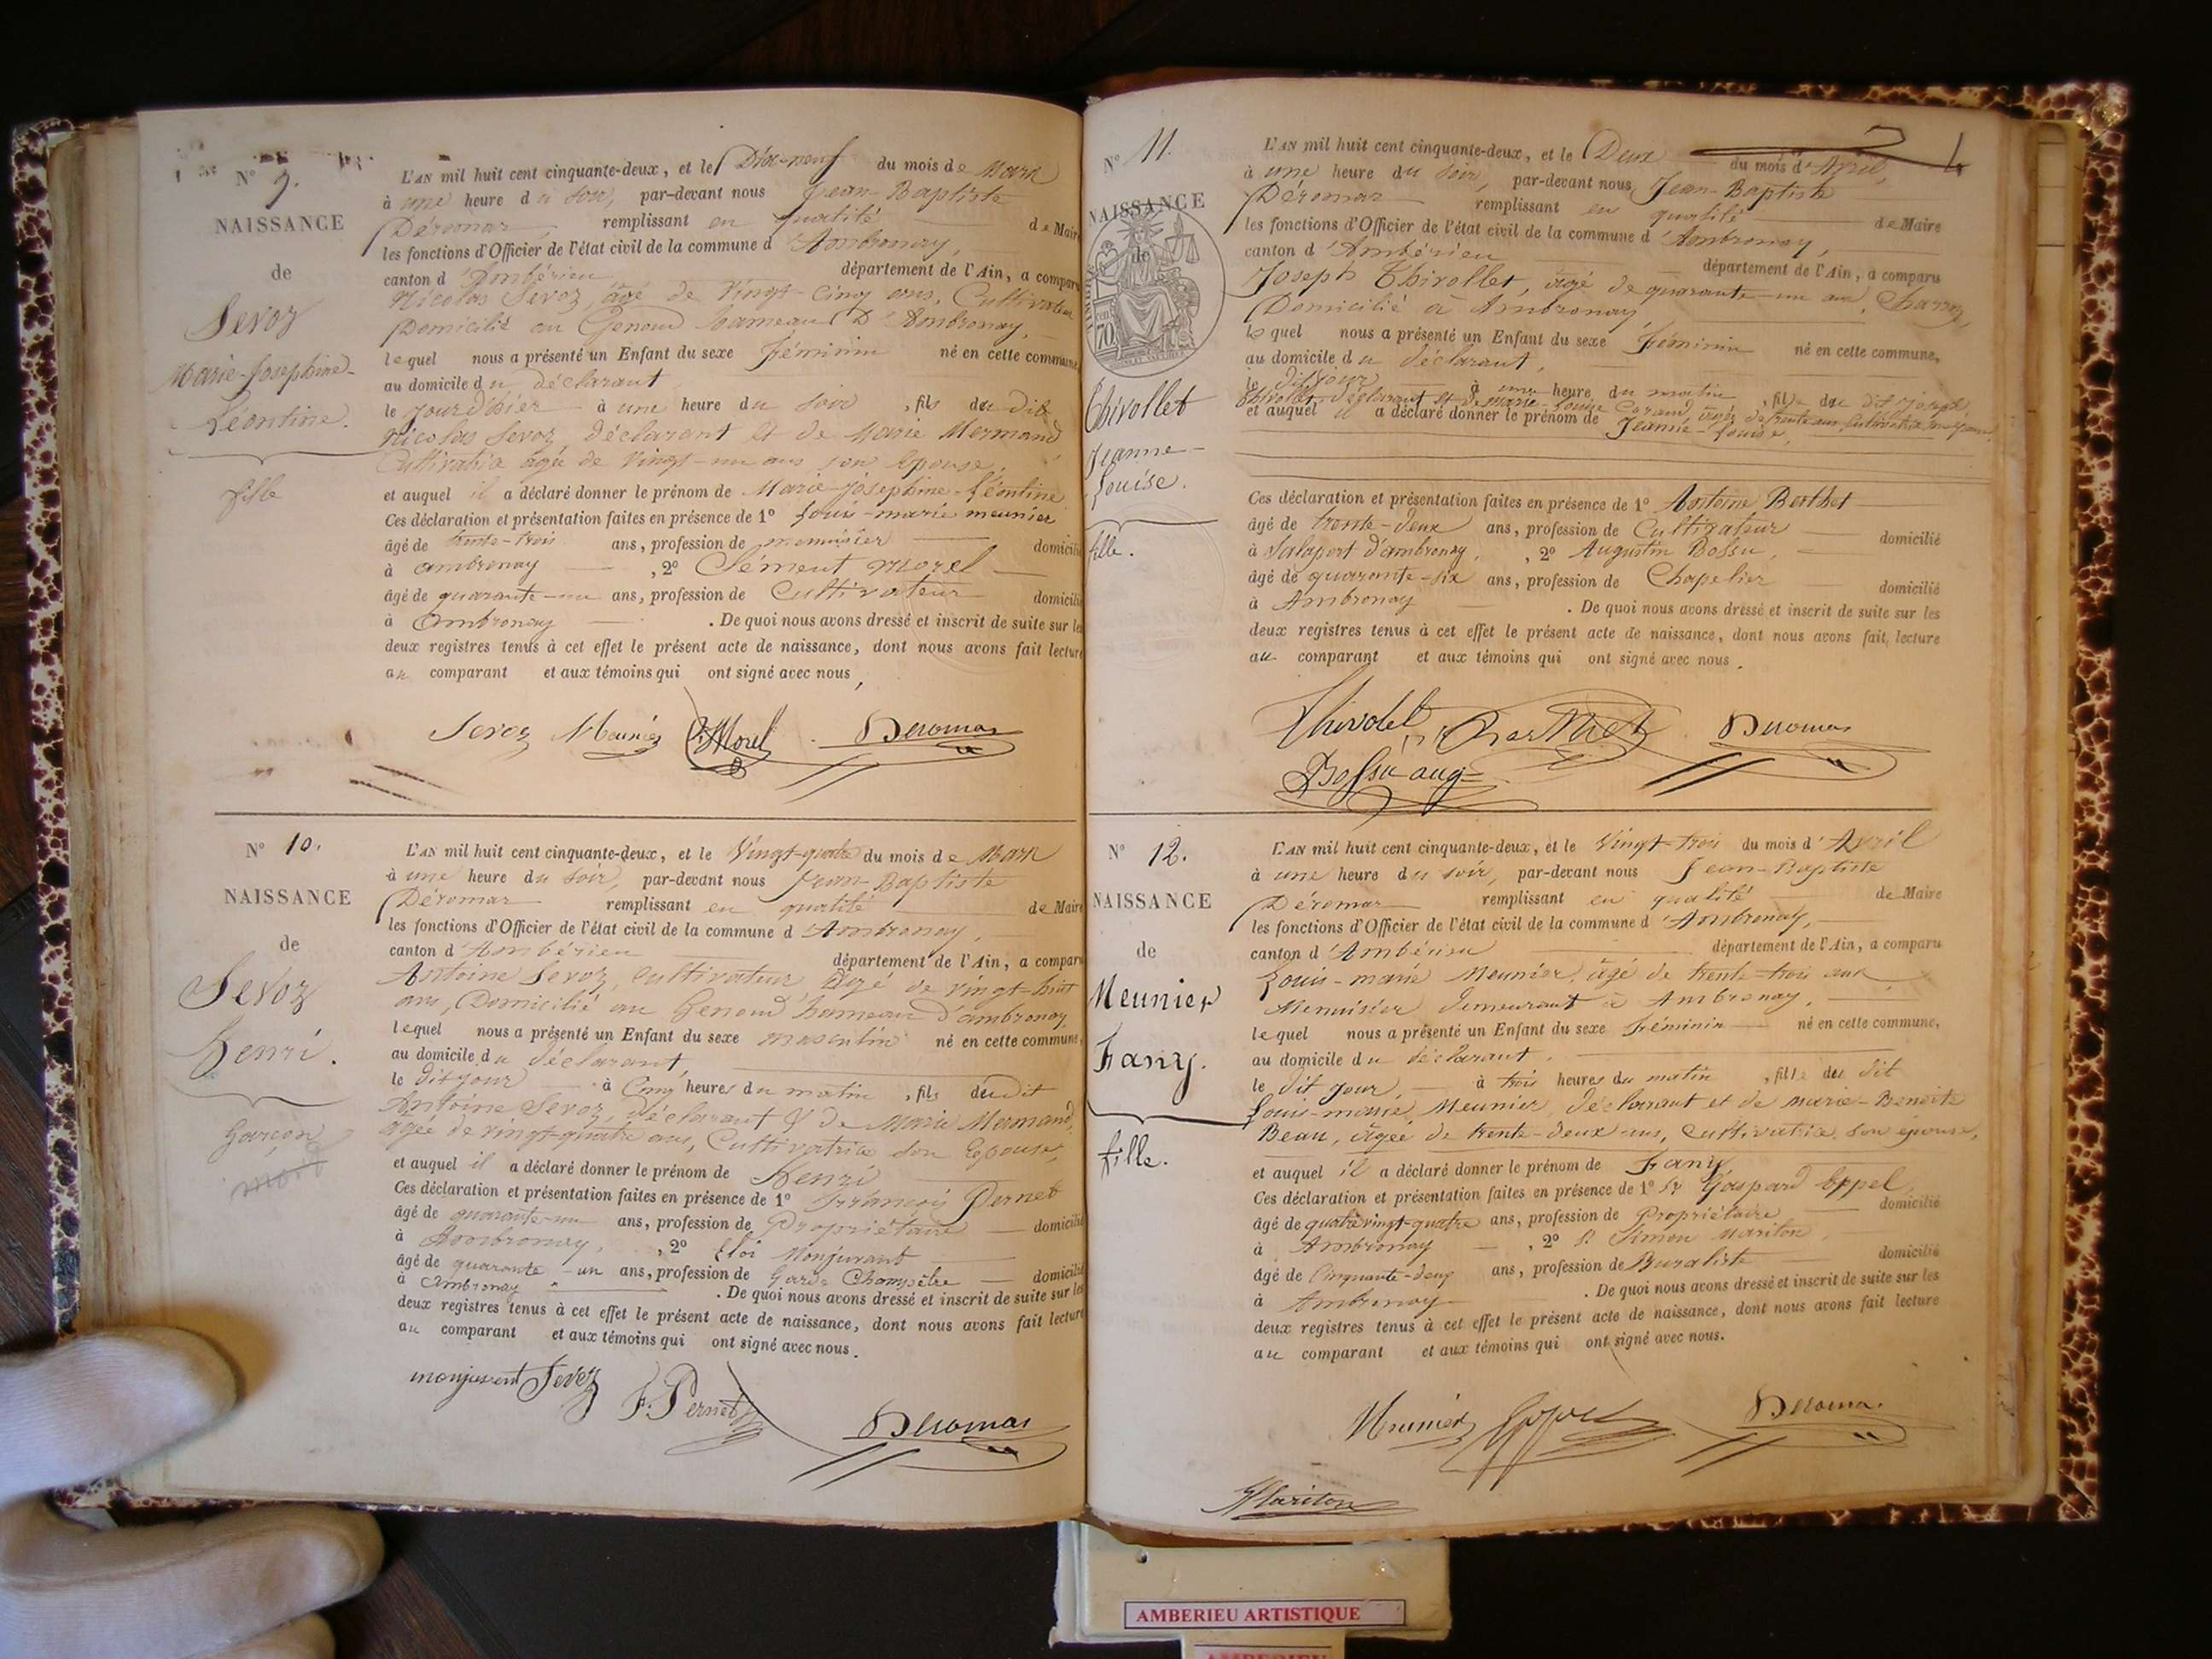 N° 9.
NAISSANCE
de
Sevoz
Marie-Josephine-
Léontine.
fille
L'AN mil huit cent cinquante-deux, et le Dix-neuf du mois de Mars
à une heure du soir, par-devant nous Jean-Baptiste
Déromas remplissant en qualité de Maire
les fonctions d'Officier de l'état civil de la commune d'Ambronay,
canton d'Ambérieu département de l'Ain, a comparu
Nicolas Sevoz, âgé de Vingt-cinq ans, Cultivateur
Domicilié au Genoud hameau D'Ambronay,
lequel nous a présenté un Enfant du sexe féminin né en cette commune,
au domicile du déclarant
le jour d'hier à une heure du soir, fils du dit
Nicolas Sevoz, déclarant et de Marie Mermand
Cultivatrice âgée de Vingt-un ans son épouse,
et auquel il a déclaré donner le prénom de Marie-Joséphine-Léontine
Ces déclaration et présentation faites en présence de 1° Louis-marie meunier
âgé de trente-trois ans, profession de menuisier domicilié
à ambronay, 2° Clément Morel
âgé de quarante-un ans, profession de Cultivateur domicilié
à Ambronay. De quoi nous avons dressé et inscrit de suite sur les
deux registres tenus à cet effet le présent acte de naissance, dont nous avons fait lecture
au comparant et aux témoins qui ont signé avec nous,
Sevoz Meunier Morel Deromas
N° 10.
NAISSANCE
de
Sevoz
Henri.
Garçon
mort
L'AN mil huit cent cinquante-deux, et le Vingt-quatre du mois de Mars
à une heure du soir, par-devant nous Jean-Baptiste
Déromas remplissant en qualité de Maire
les fonctions d'Officier de l'état civil de la commune d'Ambronay,
canton d'Ambérieu département de l'Ain, a comparu
Antoine Sevoz, Cultivateur âgé de vingt-huit
ans, Domicilié au Genoud hameau d'ambronay
lequel nous a présenté un Enfant du sexe masculin né en cette commune,
au domicile du déclarant,
le dit jour à Cinq heures du matin, fils du dit
Antoine Sevoz, déclarant & de Marie Mermand,
agée de vingt-quatre ans, Cultivatrice son Epouse,
et auquel il a déclaré donner le prénom de Henri
Ces déclaration et présentation faites en présence de 1° François Pernet
âgé de quarante-un ans, profession de Propriétaire domicilié
à Ambronay, 2° Eloi Monjuvant
âgé de quarante-un ans, profession de Garde Champêtre domicilié
à Ambronay. De quoi nous avons dressé et inscrit de suite sur les
deux registres tenus à cet effet le présent acte de naissance, dont nous avons fait lecture
au comparant et aux témoins qui ont signé avec nous.
monjuvent Sevoz F. Pernet Deromas
N° 11.
NAISSANCE
de
70
Thivollet
Jeanne-
Louise.
fille.
L'AN mil huit cent cinquante-deux, et le Deux du mois d'Avril,
à une heure du soir, par-devant nous Jean-Baptiste
Déromas remplissant en qualité de Maire
les fonctions d'Officier de l'état civil de la commune d'Ambronay,
canton d'Ambérieu département de l'Ain, a comparu
Joseph Thivollet, âgé de quarante-un an, Charron,
Domicilié à Ambronay
lequel nous a présenté un Enfant du sexe féminin né en cette commune,
au domicile du déclarant,
le dit jour à une heure du matin, fille du dit Joseph
Thivollet, déclarant et de marie-Louise âgée de trente ans, Cultivatrice
et auquel il a déclaré donner le prénom de Jeanne-Louise,
Ces déclaration et présentation faites en présence de 1° Antoine Berthet
âgé de trente-deux ans, profession de Cultivateur domicilié
à Salaport d'ambronay, 2° Augustin Bossu,
âgé de quarante-six ans, profession de Chapelier domicilié
à Ambronay. De quoi nous avons dressé et inscrit de suite sur les
deux registres tenus à cet effet le présent acte de naissance, dont nous avons fait lecture
au comparant et aux témoins qui ont signé avec nous.
Thivolet Berthet Deromas
Bossu aug
N° 12.
NAISSANCE
de
Meunier
Fany.
fille.
L'AN mil huit cent cinquante-deux, et le Vingt-trois du mois d'Avril
à une heure du soir, par-devant nous Jean-Baptiste
Déromas remplissant en qualité de Maire
les fonctions d'Officier de l'état civil de la commune d'Ambronay,
canton d'Ambérieu département de l'Ain, a comparu
Louis-marie Meunier, âgé de trente-trois ans
Menuisier demeurant à Ambronay,
lequel nous a présenté un Enfant du sexe féminin né en cette commune,
au domicile du déclarant,
le dit jour, à trois heures du matin, fille du dit
Louis-marie Meunier, déclarant et de marie-Benoite
Beau, âgée de trente-deux ans, Cultivatrice, son épouse,
et auquel il a déclaré donner le prénom de Fany
Ces déclaration et présentation faites en présence de 1° Sr Gaspard Eppel
âgé de quatre vingt-quatre ans, profession de Propriétaire domicilié
à Ambronay, 2° Sr Simon Mariton,
âgé de Cinquante-deux ans, profession de Buraliste domicilié
à Ambronay. De quoi nous avons dressé et inscrit de suite sur les
deux registres tenus à cet effet le présent acte de naissance, dont nous avons fait lecture
au comparant et aux témoins qui ont signé avec nous.
Meunier Deromas
Mariton
AMBERIEU ARTISTIQUE
AMBERIEU